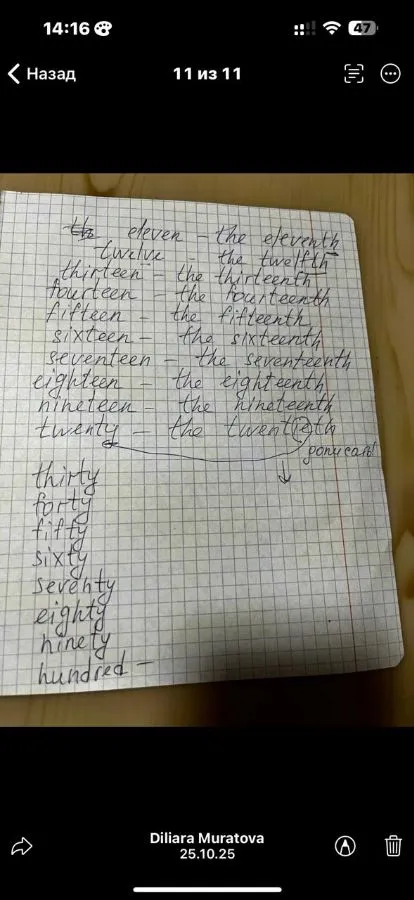 14:16
47
Назад
11 из 11
eleven – the eleventh
twelve – the twelfth
thirteen – the thirteenth
fourteen – the fourteenth
fifteen – the fifteenth
sixteen – the sixteenth
seventeen – the seventeenth
eighteen – the eighteenth
nineteen – the nineteenth
twenty – the twentieth
thirty
forty
fifty
sixty
seventy
eighty
ninety
hundred –
Diliara Muratova
25.10.25